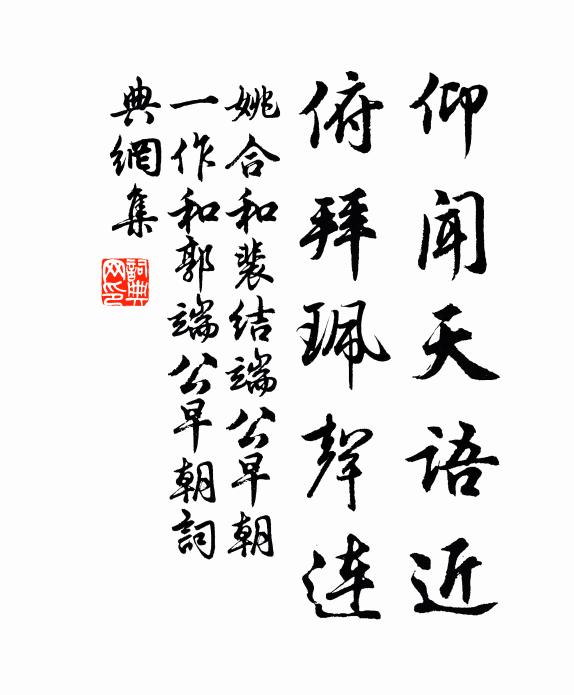 仰聞天語近
俯拜珮聲連
姚合和裴結端公早朝
一作和郭端公早朝詞
典網集
詞典网印